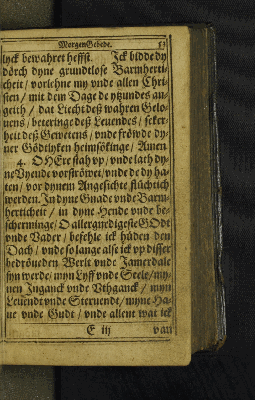 MorgenGebede. 53
lyck bewahret heffst. Ick bidde dy
dörch dyne grundtlose Barmherti-
cheit / vorlehne my vnde allen Chri-
sten / mit dem Dage de ytzundes an-
geith / dat Liecht deß wahren Gelo-
uens / beteringe deß Leuendes / seker-
heit deß Gewetens / vnde fröwde dy-
ner Gödtlyken heimsökinge / Amen.
4. O HEre stah vp / vnde lath dy-
ne Vyende vorströwet / vnde de dy ha-
ten / vor dynem Angesichte flüchtich
werden. In dyne Gnade vnde Barm-
herticheit / in dyne Hende vnde be-
scherminge / O allergnedigeste GOdt
vnde Vader / befehle ick hüden den
Dach / vnde so lange alse ick vp disser
bedröueden Werlt vnde Jamerdale
syn werde / myn Lyff vnde Seele / my-
nen Inganck vnde Vthganck / myn
Leuendt vnde Steruendt / myne Ha-
ue vnde Gudt / vnde allent wat ick
E iij van